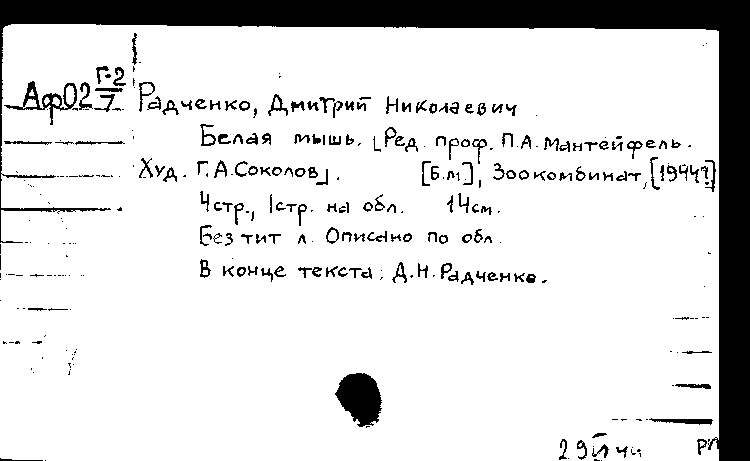 Аф02 Г-2/7 Радченко, Дмитрий Николаевич
Белая мышь. [Ред. проф. П.А. Мантейфель.
Худ. Г.А. Соколов]. [Б.м], Зоокомбинат, [1944?]
4стр., 1стр. на обл. 14см.
Без тит л. Описано по обл.
В конце текста: Д.Н. Радченко.